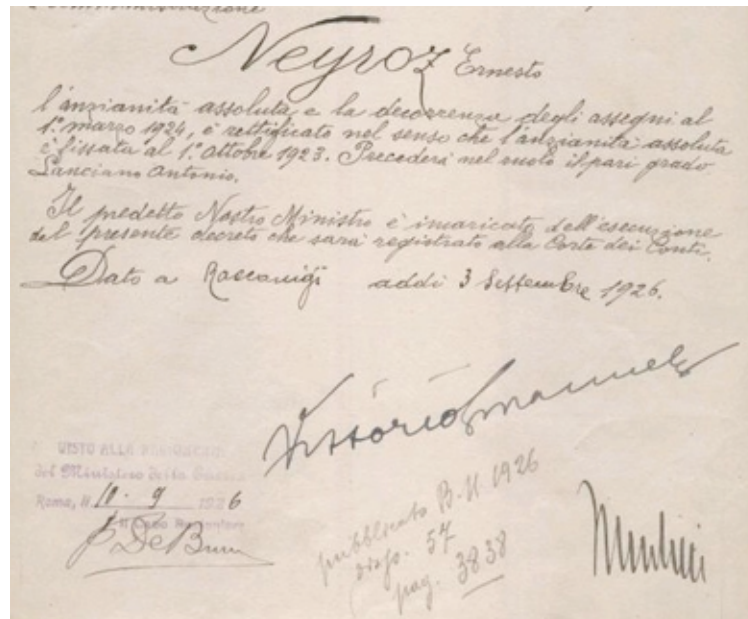 Neyroz Ernesto
l'anzianità assoluta e la decorrenza degli assegni al
1º. marzo 1924, è rettificato nel senso che l'anzianità assoluta
è fissata al 1º. Ottobre 1923. Precederà nel ruolo il pari grado
Lanciano Antonio.
Il predetto Nostro Ministro è incaricato dell'esecuzione
del presente decreto che sarà registrato alla Corte dei Conti.
Dato a Racconigi addì 3 Settembre 1926.
Vittorio Emanuele
VISTO ALLA RAGIONERIA
del Ministero della Guerra
Roma, li 10 - 9 1926
Il Capo Ragioniere
pubblicato B.U. 1926
disp. 57
pag. 3838
Mussolini